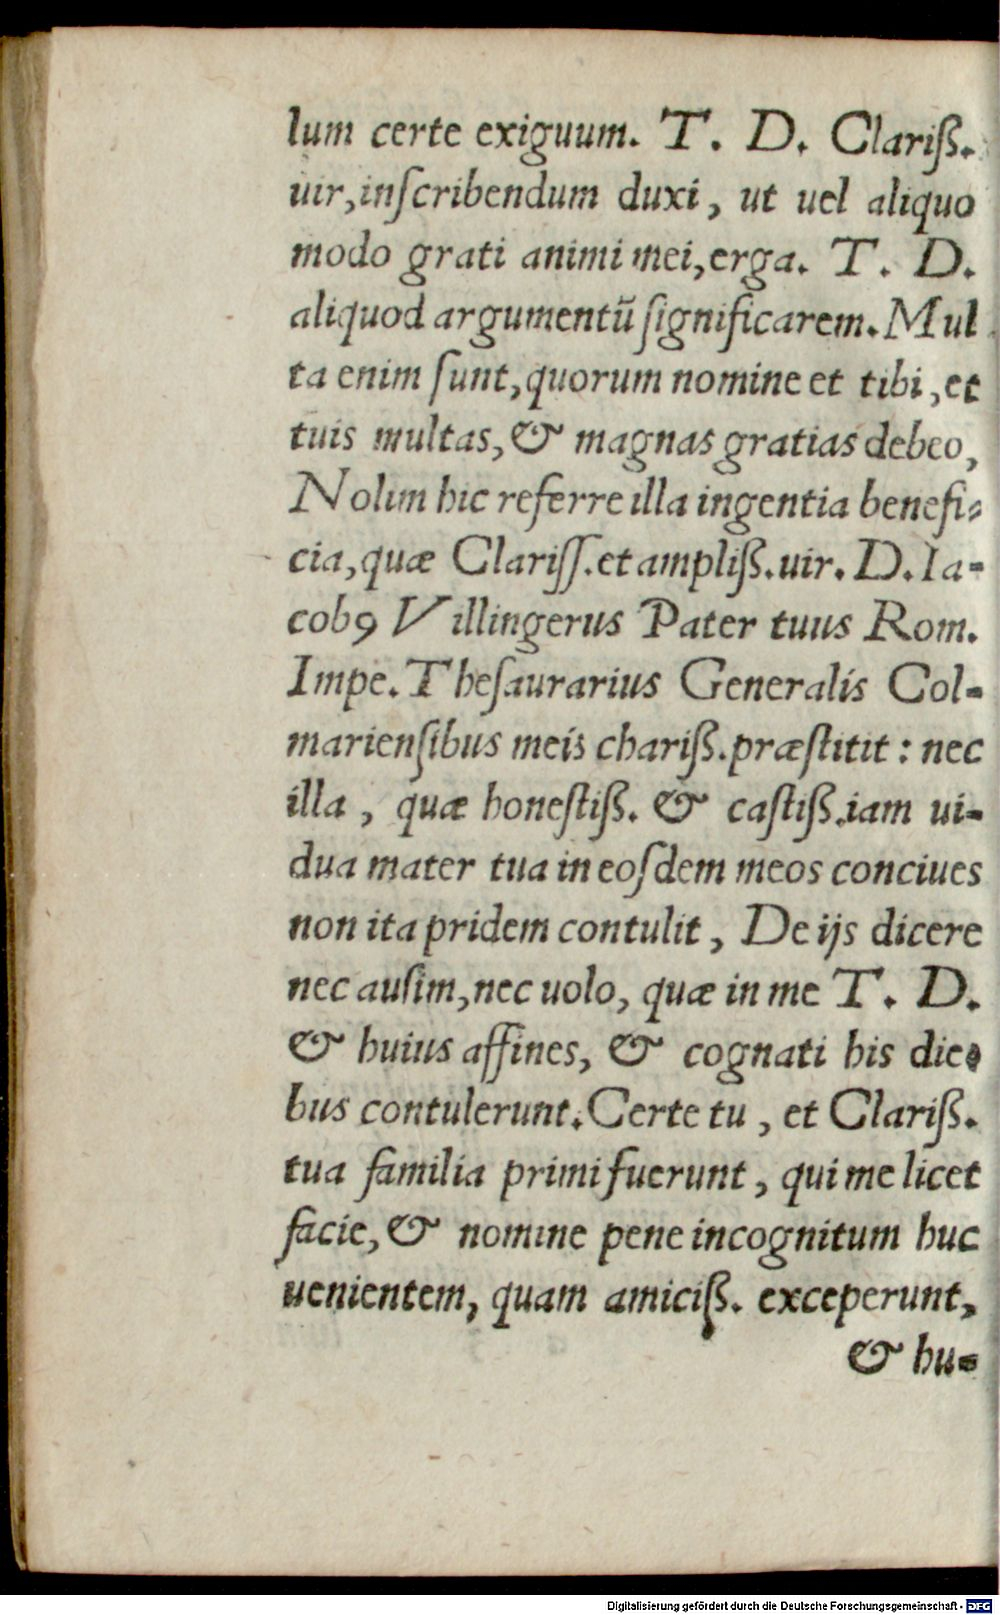 lum certe exiguum. T. D. Clariß.
uir,inſcribendum duxi, ut uel aliquo
modo grati animi mei,erga. T. D.
aliquod argumentū ſignificarem. Mul
ta enim ſunt,quorum nomine et tibi,et
tuis multas,& magnas gratias debeo,
Nolim hic referre illa ingentia benefi-
cia,quæ Clariſſ.et ampliß.uir. D. Ia-
cobꝰ Villingerus Pater tuus Rom.
Impe. Theſaurarius Generalis Col-
marienſibus meis chariß.præſtitit: nec
illa, quæ honeſtiß. & caſtiß.iam ui-
dua mater tua in eoſdem meos conciues
non ita pridem contulit, De ijs dicere
nec auſim,nec uolo, quæ in me T. D.
& huius affines, & cognati his die-
bus contulerunt. Certe tu, et Clariß.
tua familia primi fuerunt, qui me licet
facie,& nomine pene incognitum huc
uenientem, quam amiciß. exceperunt,
& hu-
Digitalisierung gefördert durch die Deutsche Forschungsgemeinschaft - DFG